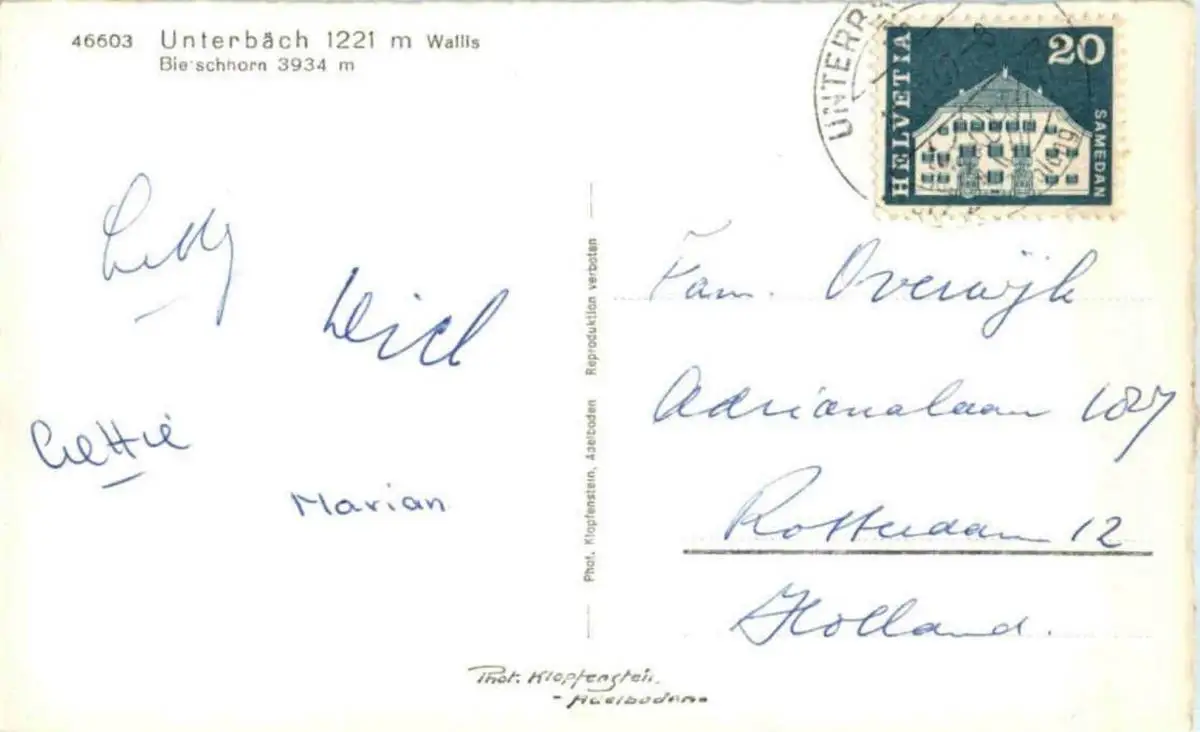 46603 Unterbäch 1221 m Wallis
Bietschhorn 3934 m
HELVETIA
20
SAMEDAN
Wiel
Marian
Fam. Overwijk
Adrianalaan 107
Rotterdam 12
Holland.
Phot. Klopfenstein, Adelboden Reproduktion verboten
Phot. Klopfenstein.
- Adelboden -